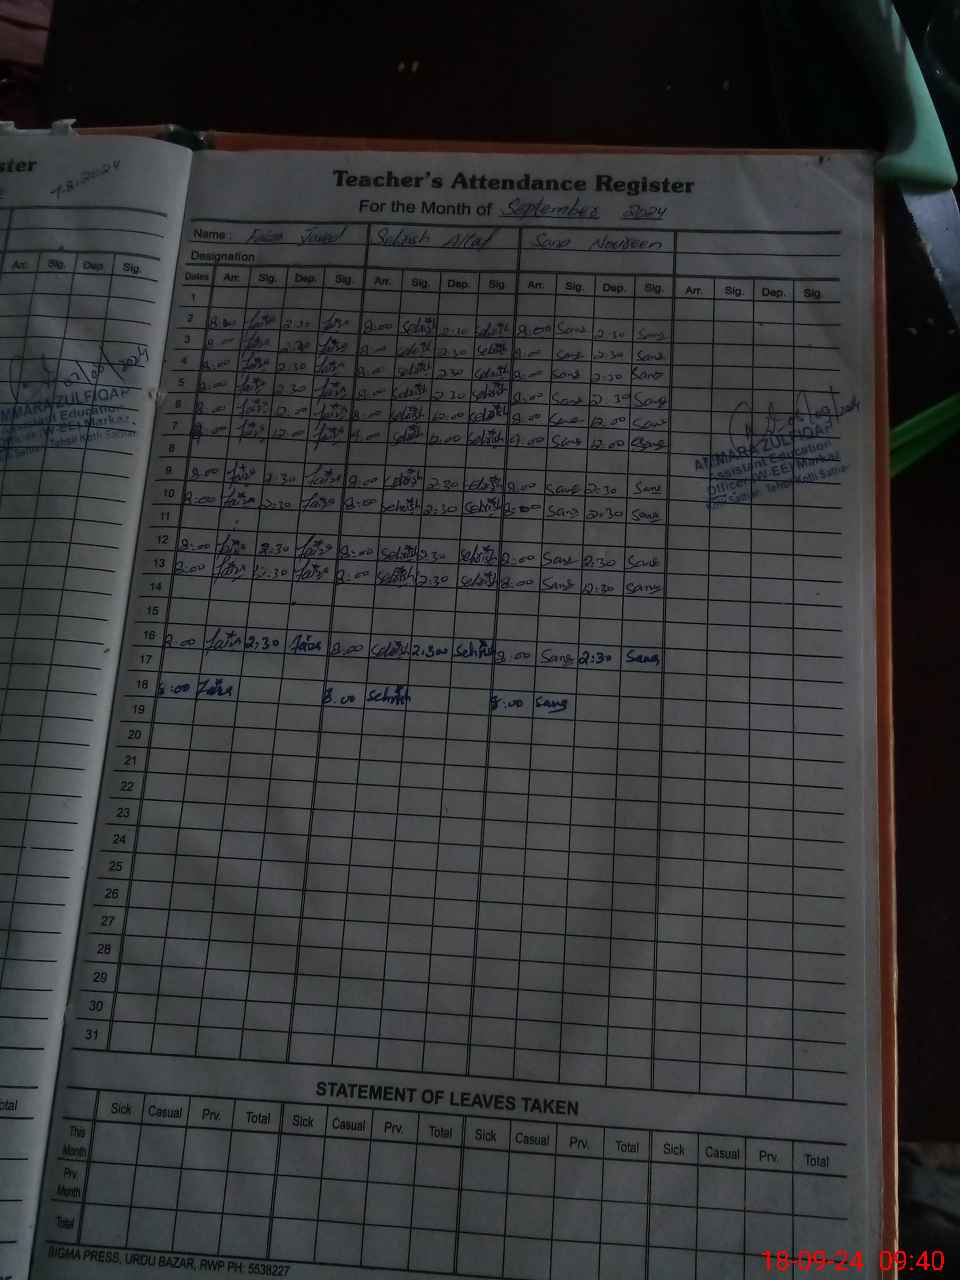 ster
7.8.2024
Teacher's Attendance Register
For the Month of September 2024
Name : Faiza Javed Sehrish Altaf Sana Noureen
Designation
Arr. Sig. Dep. Sig.
Dates Arr. Sig. Dep. Sig. Arr. Sig. Dep. Sig. Arr. Sig. Dep. Sig. Arr. Sig. Dep. Sig.
1
2 8:00 Faiza 2:30 Faiza 8:00 Sehrish 2:30 Sehrish 8:00 Sana 2:30 Sana
3 8:00 Faiza 2:30 Faiza 8:00 Sehrish 2:30 Sehrish 8:00 Sana 2:30 Sana
4 8:00 Faiza 2:30 Faiza 8:00 Sehrish 2:30 Sehrish 8:00 Sana 2:30 Sana
5 8:00 Faiza 2:30 Faiza 8:00 Sehrish 2:30 Sehrish 8:00 Sana 2:30 Sana
6 8:00 Faiza 12:00 Faiza 8:00 Sehrish 12:00 Sehrish 8:00 Sana 12:00 Sana
7 8:00 Faiza 12:00 Faiza 8:00 Sehrish 12:00 Sehrish 8:00 Sana 12:00 Sana
AMMARA ZULFIQAR
Assistant Education
Officer (W-EE) Markaz
8
9 8:00 Faiza 2:30 Faiza 8:00 Sehrish 2:30 Sehrish 8:00 Sana 2:30 Sana
10 8:00 Faiza 2:30 Faiza 8:00 Sehrish 2:30 Sehrish 8:00 Sana 2:30 Sana
11
12 8:00 Faiza 2:30 Faiza 8:00 Sehrish 2:30 Sehrish 8:00 Sana 2:30 Sana
13 8:00 Faiza 12:30 Faiza 8:00 Sehrish 12:30 Sehrish 8:00 Sana 12:30 Sana
14
15
16 8:00 Faiza 2:30 Faiza 8:00 Sehrish 2:30 Sehrish 8:00 Sana 2:30 Sana
17
18 8:00 Faiza 8:00 Sehrish 8:00 Sana
19
20
21
22
23
24
25
26
27
28
29
30
31
STATEMENT OF LEAVES TAKEN
Sick Casual Prv. Total Sick Casual Prv. Total Sick Casual Prv. Total Sick Casual Prv. Total
This Month
Prv. Month
Total
SIGMA PRESS, URDU BAZAR, RWP PH: 5538227
18-09-24 09:40